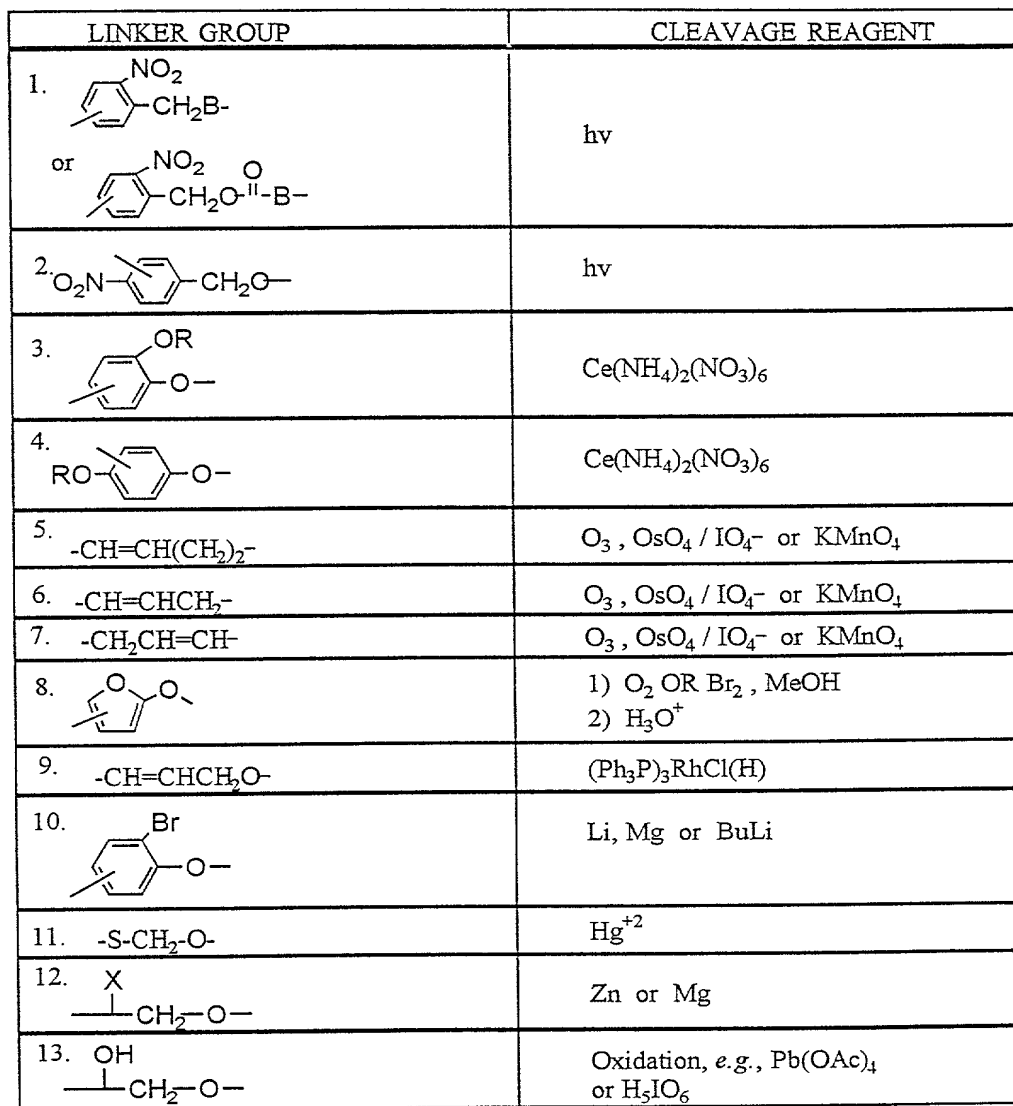 LINKER GROUP CLEAVAGE REAGENT
1. NO₂
CH₂B-
or NO₂ O
CH₂O-"-B-
hv
2. O₂N- -CH₂O-
hv
3. OR
O-
Ce(NH₄)₂(NO₃)₆
4. RO- -O-
Ce(NH₄)₂(NO₃)₆
5. -CH=CH(CH₂)₂- O₃ , OsO₄ / IO₄⁻ or KMnO₄
6. -CH=CHCH₂- O₃ , OsO₄ / IO₄⁻ or KMnO₄
7. -CH₂CH=CH- O₃ , OsO₄ / IO₄⁻ or KMnO₄
8. O O
1) O₂ OR Br₂ , MeOH
2) H₃O⁺
9. -CH=CHCH₂O- (Ph₃P)₃RhCl(H)
10. Br
-O-
Li, Mg or BuLi
11. -S-CH₂-O- Hg⁺²
12. X
CH₂-O-
Zn or Mg
13. OH
CH₂-O-
Oxidation, e.g., Pb(OAc)₄
or H₅IO₆